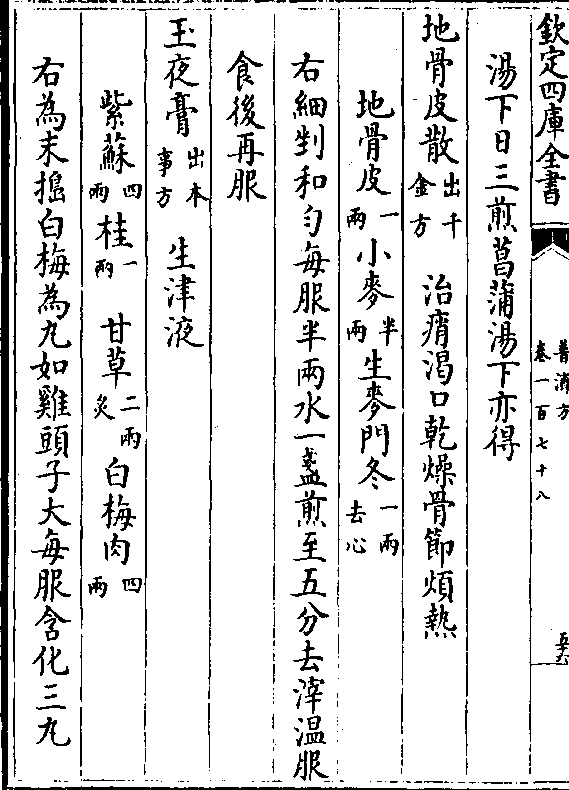 欽定四庫全書
普濟方
卷一百七十八
湯下日三煎菖蒲湯下亦得
地骨皮散出千金方 治痟渴口乾燥骨節煩熱
地骨皮一兩 小麥半兩 生麥門冬一兩去心
右細剉和勻每服半兩水一盞煎至五分去滓溫服
食後再服
玉夜膏出本事方 生津液
紫蘇四兩 桂一兩 甘草二兩炙 白梅肉四兩
右為末搗白梅為丸如雞頭子大每服含化三丸